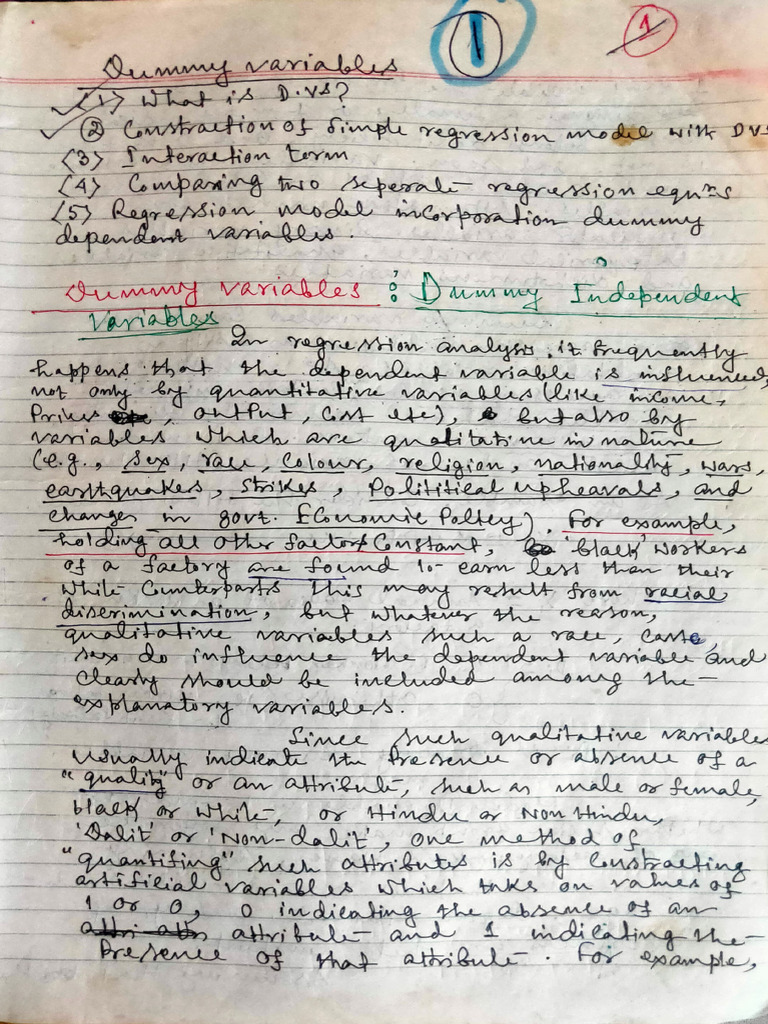 1
1
Dummy variables
(1) What is D.VS?
② Constraction of Simple regression model with DVS
(3) Interaction term
(4) Comparing two seperate regression equns
(5) Regression model incorporation dummy
dependent variables.
Dummy variables : Dummy Independent
Variables
In regression analysis, it frequently
happens that the dependent variable is influenced,
not only by quantitative variables (like income,
Prices, output, Cost etc), but also by
variables which are qualitative in nature
(e.g., Sex, race, Colour, religion, nationality, wars,
earthquakes, Strikes, Politi​tical upheavals, and
changes in govt. Economic Policy). For example,
holding all other factors Constant, 'black' workers
of a factory are found to earn less than their
while Counterparts This may result from racial
discrimination, but whatever the reason,
qualitative variables such a race, Caste,
sex do influence the dependent variable and
Clearly should be included among the
explanatory variables.
Since such qualitative variables
Usually indicate the Presence or absence of a
"quality" or an attribute, such as male or female,
black or white, or Hindu or Non Hindu,
'Dalit' or 'Non-dalit', one method of
"quantifing" such attributes is by Constracting
artificial variables which takes on values of
1 or 0, 0 indicating the absence of an
attri attri attribute and 1 indicating the
Presence of that attribute. For example,